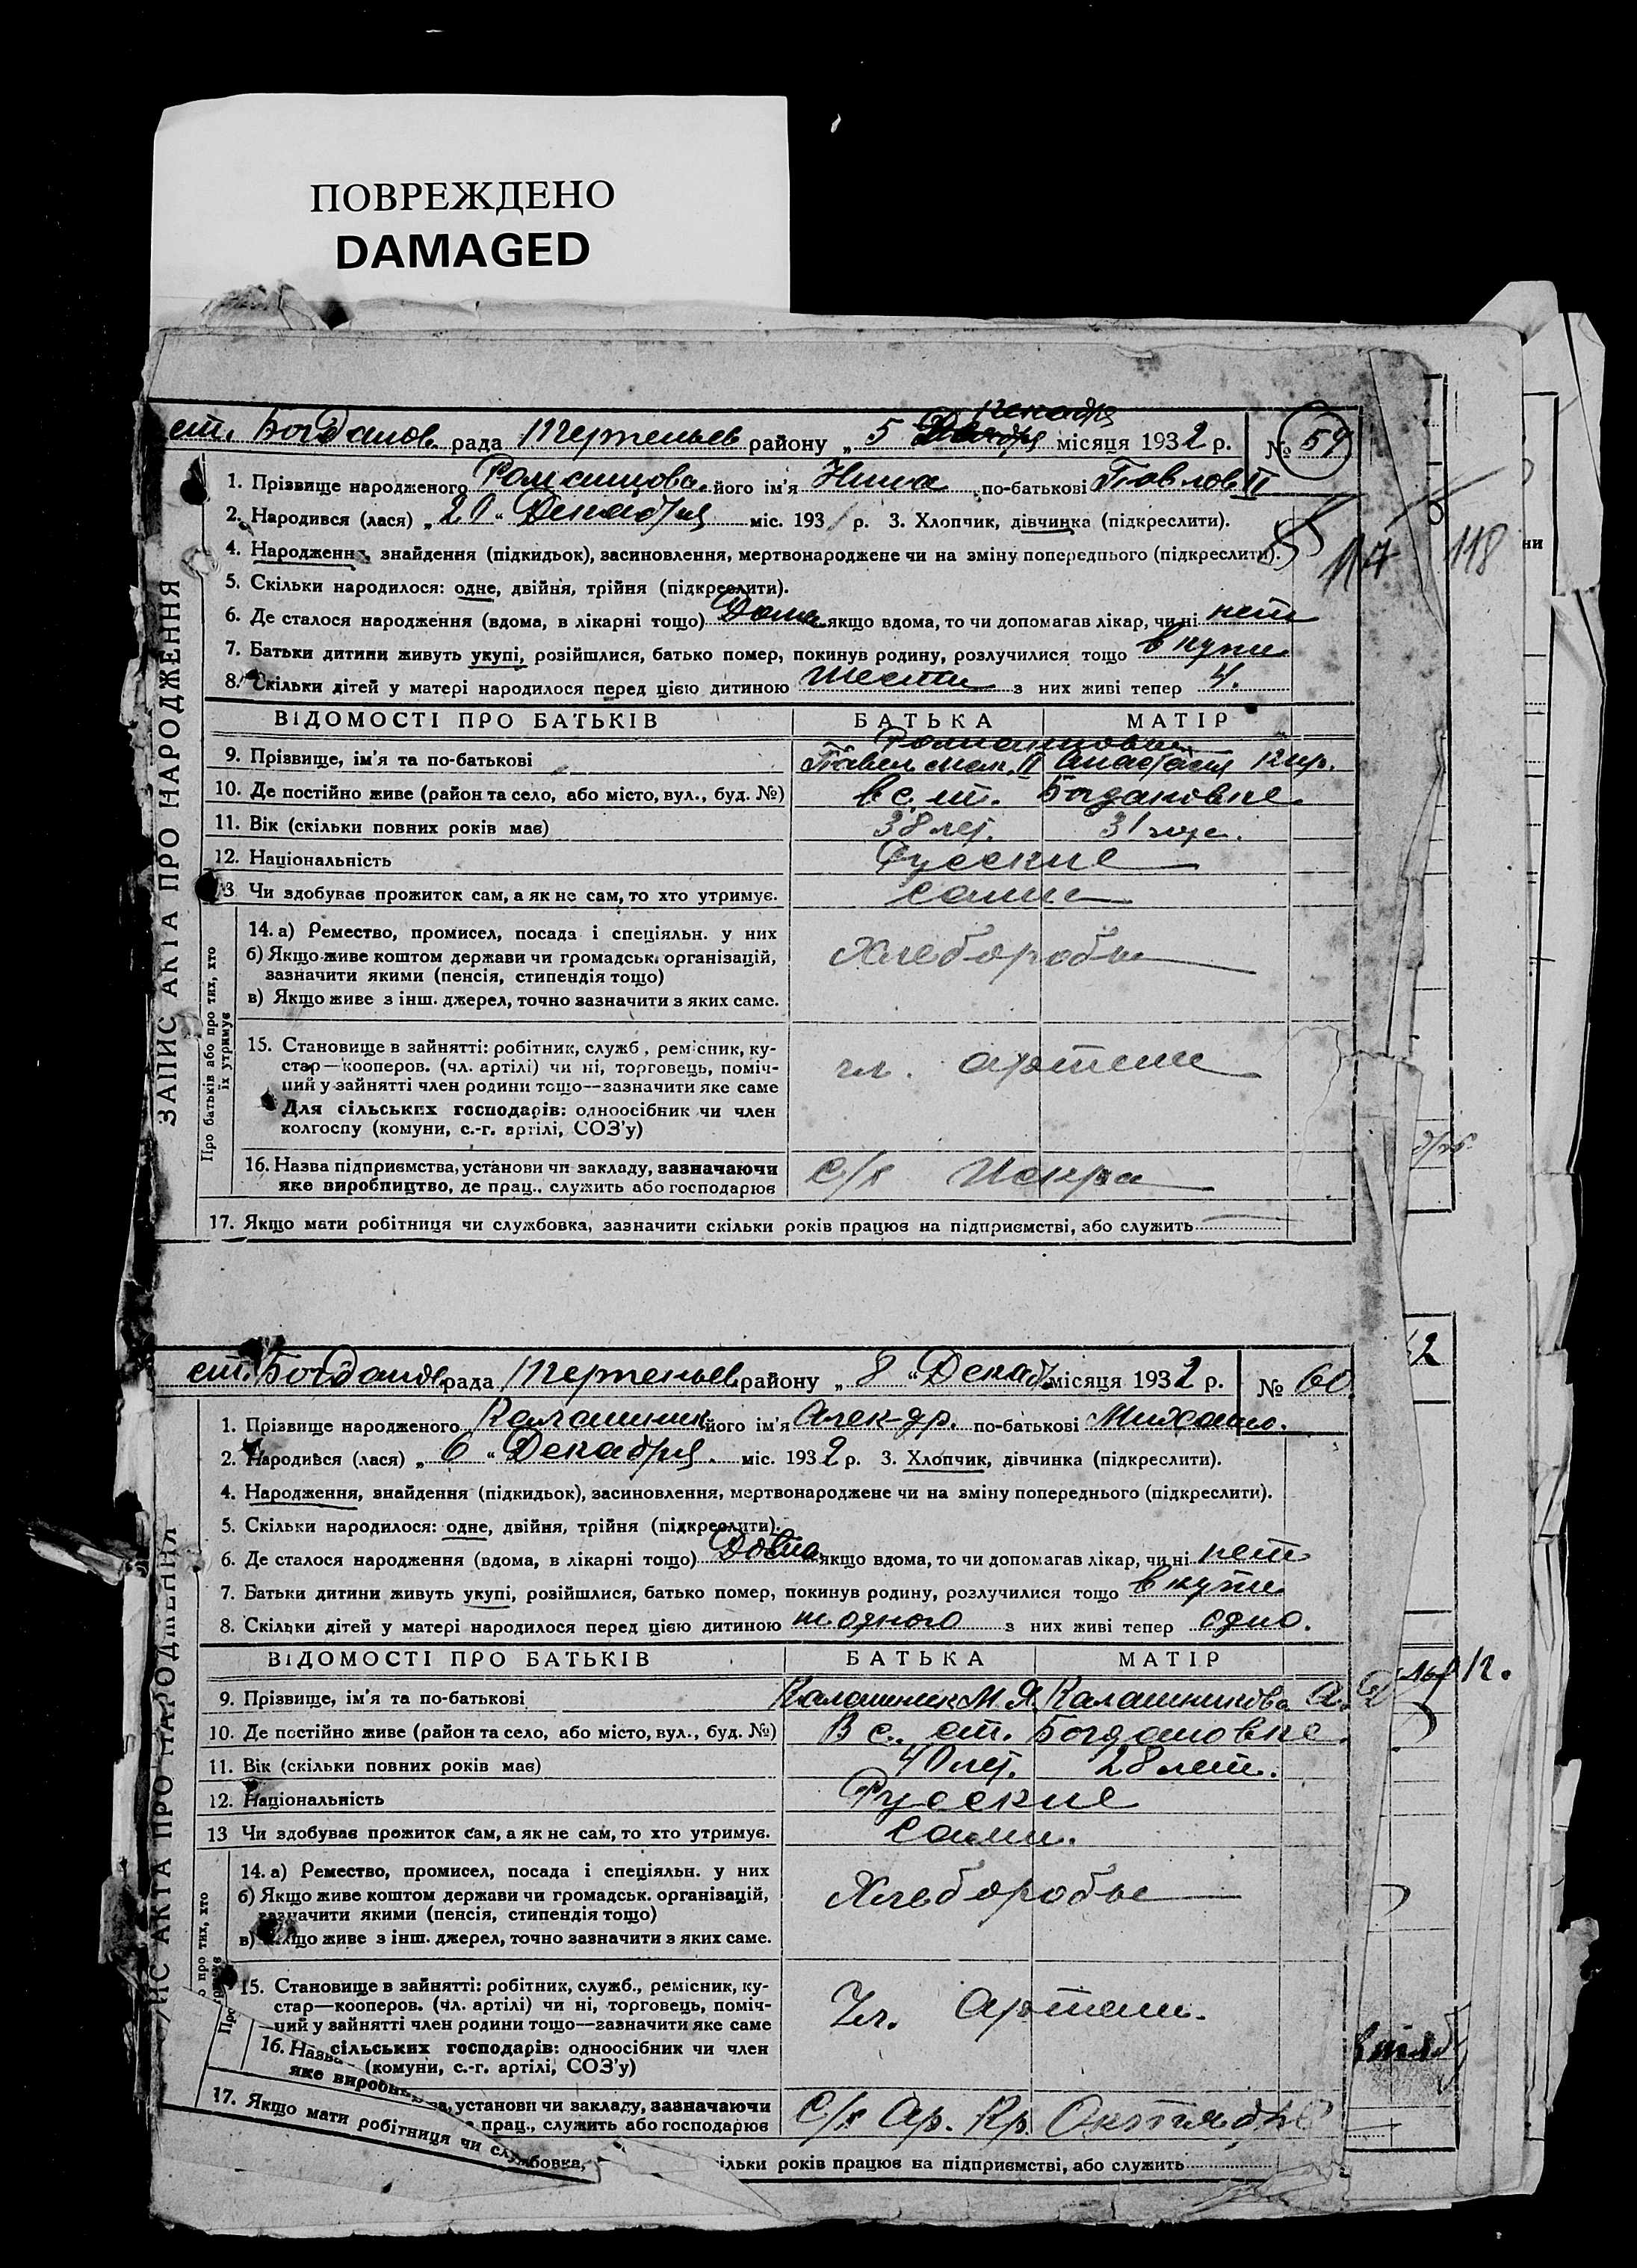 ПОВРЕЖДЕНО
DAMAGED
ст. Богданов. рада Терпеньев району „ 5 декабря місяця 1932 р. № 59
1. Прізвище народженого Романцова його ім'я Нина по-батькові Павлов. II
2. Народився (лася) „20“ Декабря міс. 193 р. 3. Хлопчик, дівчинка (підкреслити).
4. Народження, знайдення (підкидьок), засиновлення, мертвонароджене чи на зміну попереднього (підкреслити).
117 118
5. Скільки народилося: одне, двійня, трійня (підкреслити).
6. Де сталося народження (вдома, в лікарні тощо) Дома якщо вдома, то чи допомагав лікар, чи ні нет
7. Батьки дитини живуть укупі, розійшлися, батько помер, покинув родину, розлучилися тощо вкупи
8. Скільки дітей у матері народилося перед цією дитиною Шести з них живі тепер 4.
ВІДОМОСТІ ПРО БАТЬКІВ БАТЬКА МАТІР
9. Прізвище, ім'я та по-батькові Романцовы
Павел II Анастасия
10. Де постійно живе (район та село, або місто, вул., буд. №) в с. ст. Богдановке
11. Вік (скільки повних років має) 38 лет. 31
12. Національність Русские
13 Чи здобував прожиток сам, а як не сам, то хто утримує. Сами
14. а) Ремество, промисел, посада і спеціяльн. у них
б) Якщо живе коштом держави чи громадськ. організацій,
зазначити якими (пенсія, стипендія тощо)
в) Якщо живе з інш. джерел, точно зазначити з яких саме.
Хлеборобы
15. Становище в зайнятті: робітник, служб., ремісник, ку-
стар—кооперов. (чл. артілі) чи ні, торговець, поміч-
ний у зайнятті член родини тощо—зазначити яке саме
Для сільських господарів: одноосібник чи член
колгоспу (комуни, с.-г. артілі, СОЗ'у)
чл. артели
16. Назва підприємства, установи чи закладу, зазначаючи
яке виробництво, де прац., служить або господарює
С/х Искра
17. Якщо мати робітниця чи службовка, зазначити скільки років працює на підприємстві, або служить
ЗАПИС АКТА ПРО НАРОДЖЕННЯ
Про батьків або про тих, хто
їх утримує
ст. Богданов рада Терпеньев. району „ 8 “ Декаб. місяця 1932 р. № 60.
1. Прізвище народженого Калашник його ім'я Алек-др. по-батькові Михайло.
2. Народився (лася) „ 6 “ Декабря міс. 1932 р. 3. Хлопчик, дівчинка (підкреслити).
4. Народження, знайдення (підкидьок), засиновлення, мертвонароджене чи на зміну попереднього (підкреслити).
5. Скільки народилося: одне, двійня, трійня (підкреслити).
6. Де сталося народження (вдома, в лікарні тощо) Дома якщо вдома, то чи допомагав лікар, чи ні нет
7. Батьки дитини живуть укупі, розійшлися, батько помер, покинув родину, розлучилися тощо вкупи
8. Скільки дітей у матері народилося перед цією дитиною одного з них живі тепер одно.
ВІДОМОСТІ ПРО БАТЬКІВ БАТЬКА МАТІР
9. Прізвище, ім'я та по-батькові Калашник М. Я. Калашникова А. Д
10. Де постійно живе (район та село, або місто, вул., буд. №) В с. ст. Богдановке.
11. Вік (скільки повних років має) 40 лет. 28 лет.
12. Національність Русские
13 Чи здобував прожиток сам, а як не сам, то хто утримує. Сами.
14. а) Ремество, промисел, посада і спеціяльн. у них
б) Якщо живе коштом держави чи громадськ. організацій,
зазначити якими (пенсія, стипендія тощо)
в) Якщо живе з інш. джерел, точно зазначити з яких саме.
Хлеборобы
15. Становище в зайнятті: робітник, служб., ремісник, ку-
стар—кооперов. (чл. артілі) чи ні, торговець, поміч-
ний у зайнятті член родини тощо—зазначити яке саме
сільських господарів: одноосібник чи член
(комуни, с.-г. артілі, СОЗ'у)
Чл. Артели.
16. Назва
яке виробни
установи чи закладу, зазначаючи
прац., служить або господарює
С/х Ар. Кр. Октябрь
17. Якщо мати робітниця чи службовка,
ільки років працює на підприємстві, або служить
АКТА ПРО НАРОДЖЕННЯ
про тих, хто